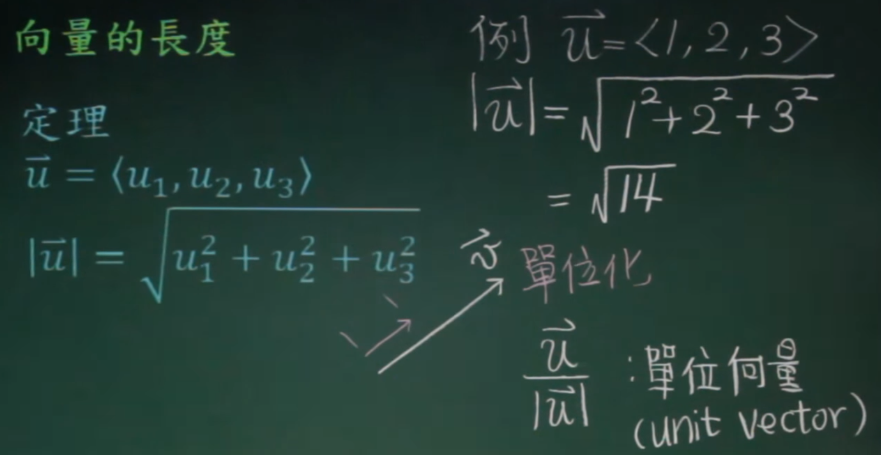 向量的長度
定理
$\vec{u} = \langle u_1, u_2, u_3 \rangle$
$|\vec{u}| = \sqrt{u_1^2 + u_2^2 + u_3^2}$
例 $\vec{u} = \langle 1, 2, 3 \rangle$
$|\vec{u}| = \sqrt{1^2 + 2^2 + 3^2}$
$= \sqrt{14}$
$\vec{v}$
單位化
$\frac{\vec{u}}{|\vec{u}|}$ : 單位向量
(unit vector)